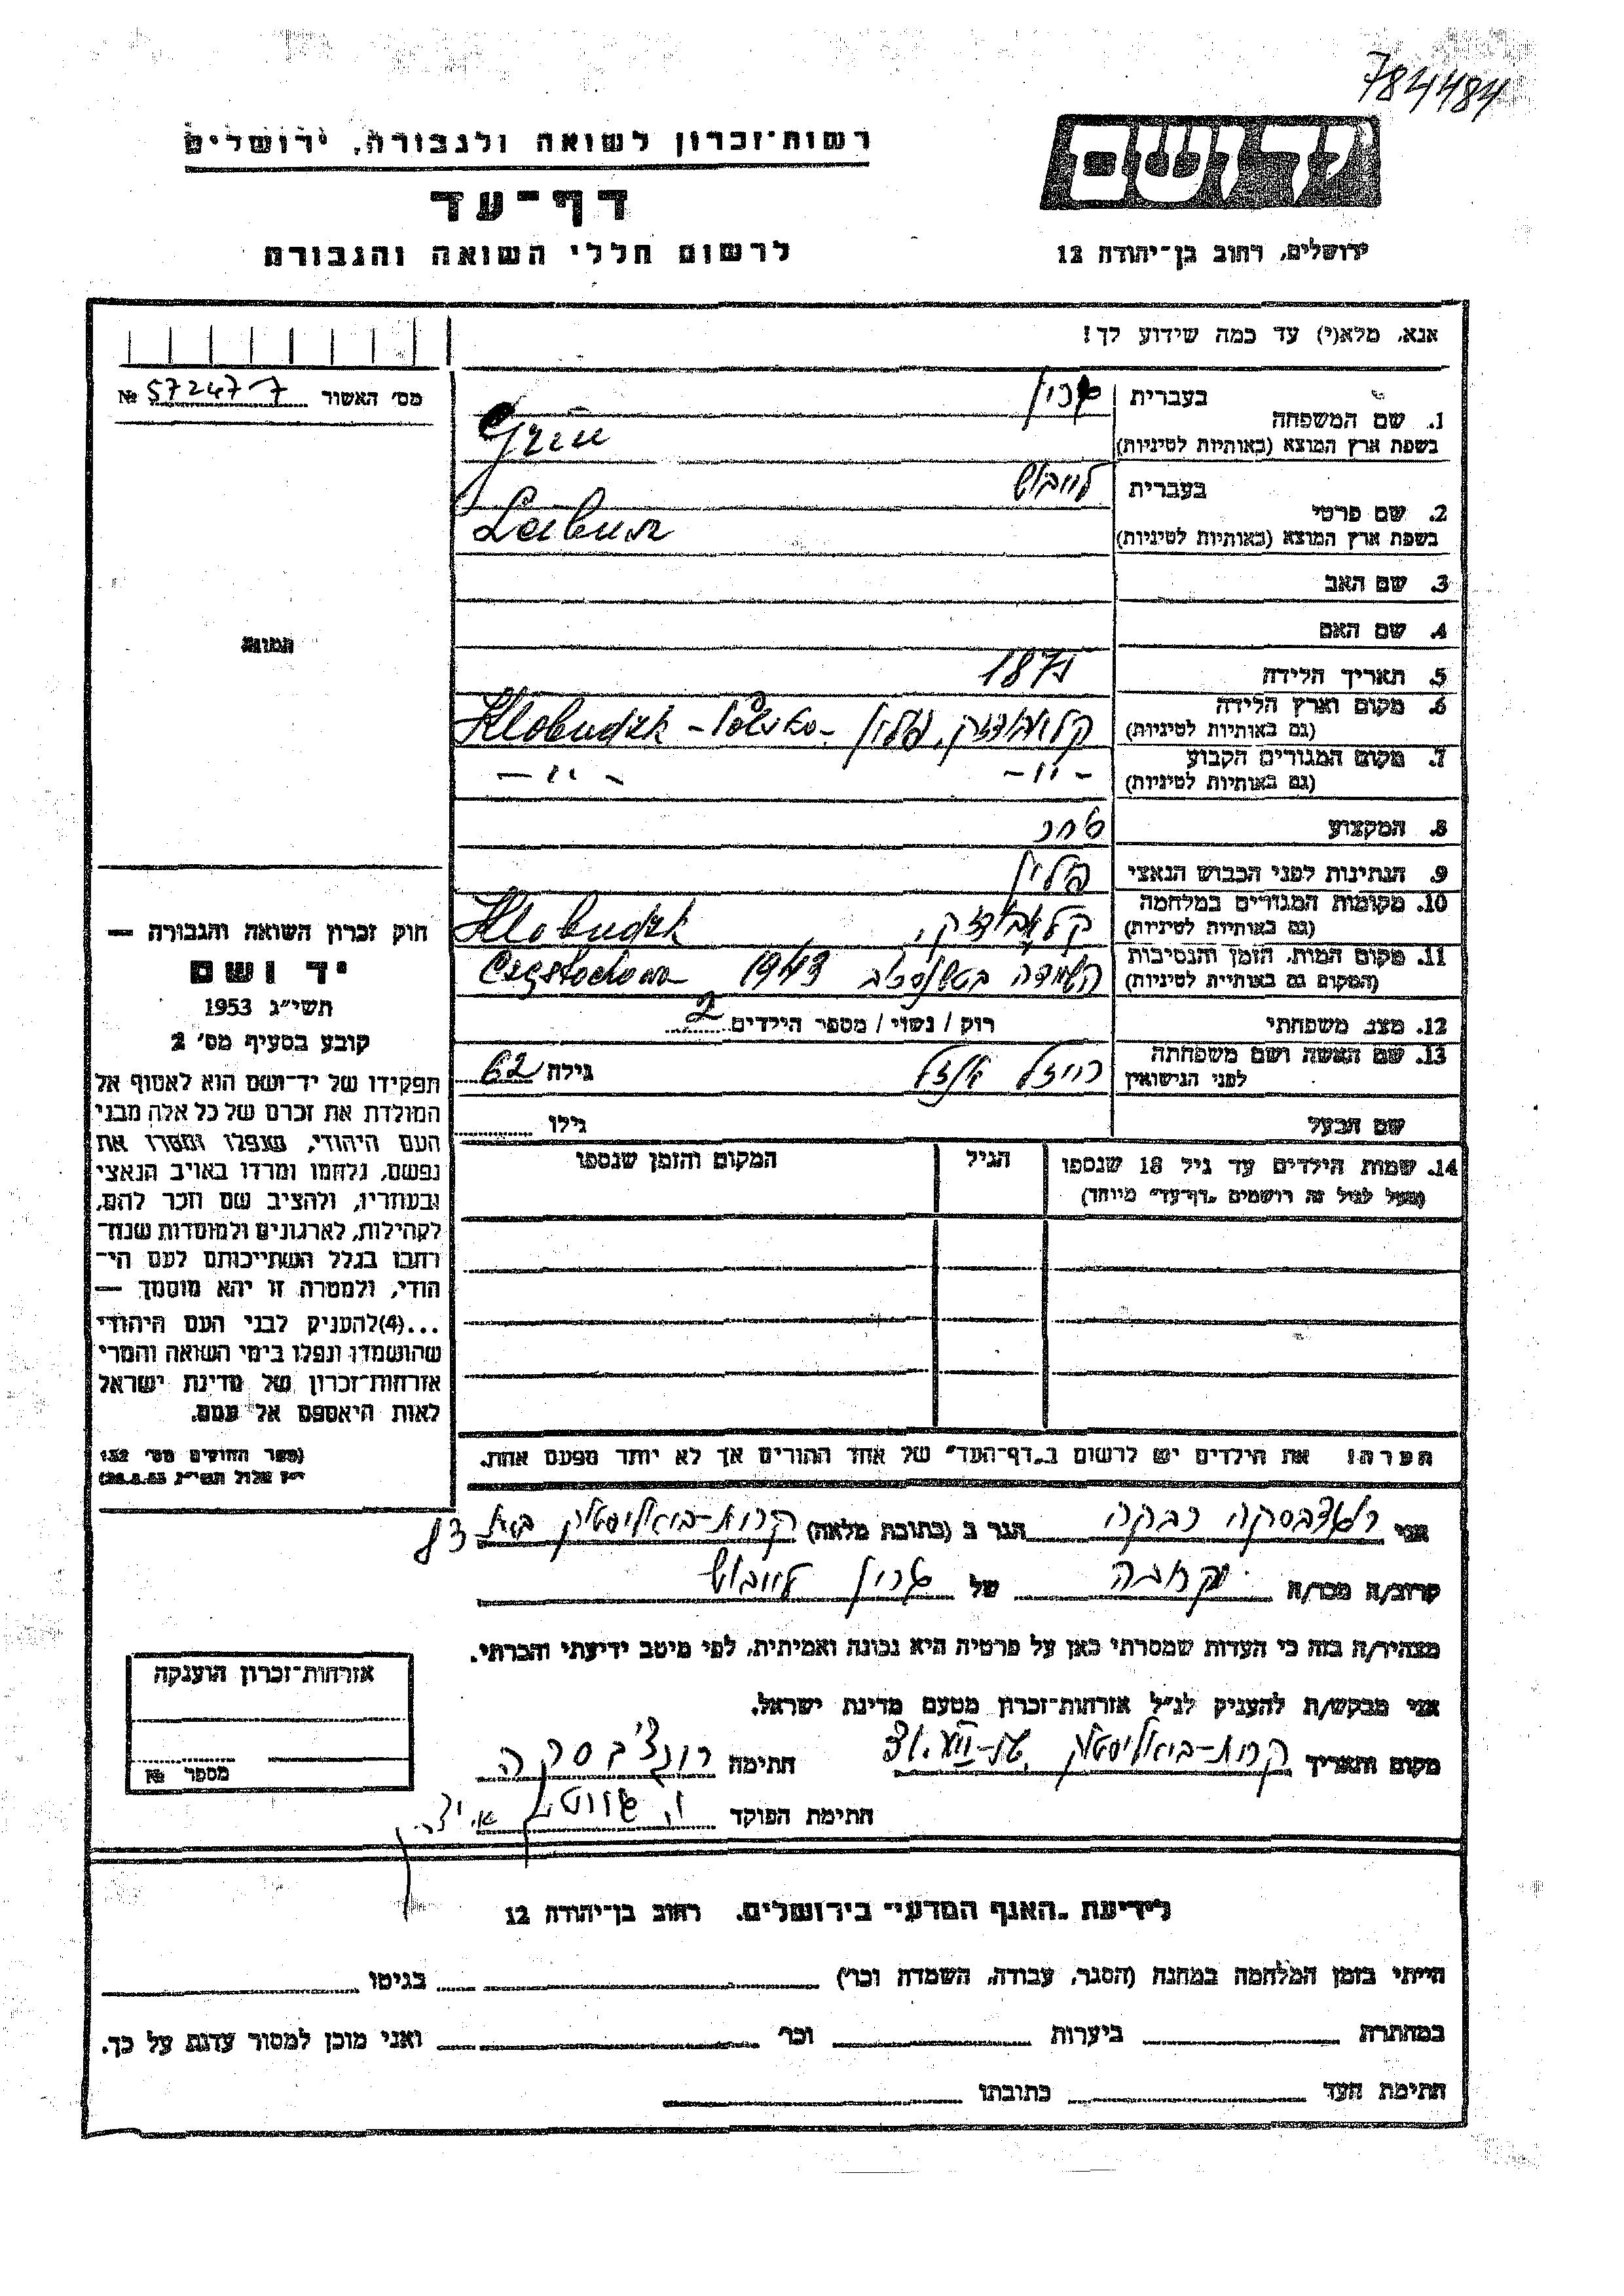 784484
יד ושם
רשות־זכרון לשואה ולגבורה, ירושלים
דף־עד
לרשום חללי השואה והגבורה
ירושלים, רחוב בן־יהודה 12
אנא, מלא(י) עד כמה שידוע לך!
מס' האשור № 572477
1. שם המשפחה בעברית גרין
בשפת ארץ המוצא (באותיות לטיניות) Grün
2. שם פרטי בעברית לייבוש
בשפת ארץ המוצא (באותיות לטיניות) Leibusz
3. שם האב
4. שם האם
5. תאריך הלידה 1871
6. מקום וארץ הלידה
(גם באותיות לטיניות) קלובוצק, פולין - Klobudzk - Polska
7. מקום המגורים הקבוע
(גם באותיות לטיניות) - " - - " -
8. המקצוע סוחר
9. הנתינות לפני הכבוש הנאצי פולין
10. מקומות המגורים במלחמה
(גם באותיות לטיניות) קלובוצק, Klobudzk
11. מקום המות, הזמן והנסיבות
(המקום גם באותיית לטיניות) השמדה 1943 Częstochowa
12. מצב משפחתי רוק / נשוי / מספר הילדים 2
13. שם האשה ושם משפחתה
לפני הנישואין רייזל גילה 62
שם הבעל גילו
14. שמות הילדים עד גיל 18 שנספו הגיל המקום והזמן שנספו
(מעל לגיל זה רושמים „דף־עד" מיוחד)
הערה: את הילדים יש לרשום ב„דף־העד" של אחד ההורים אך לא יותר מפעם אחת.
תמונה
חוק זכרון השואה והגבורה —
יד ושם
תשי״ג 1953
קובע בסעיף מס' 2
תפקידו של יד־ושם הוא לאסוף אל
המולדת את זכרם של כל אלה מבני
העם היהודי, שנפלו ומסרו את
נפשם, נלחמו ומרדו באויב הנאצי
ובעוזריו, ולהציב שם וזכר להם,
לקהילות, לארגונים ולמוסדות שנח־
רחבו בגלל השתייכותם לעם הי־
הודי, ולמטרה זו יהא מוסמך —
...(4)להעניק לבני העם היהודי
שהושמדו ונפלו בימי השואה והמרי
אזרחות־זכרון של מדינת ישראל
לאות היאספם אל עמם.
(ספר החוקים מס' 132
י״ז אלול תשי״ג, 28.8.53)
אני רבקה הגר ב (כתובת מלאה) קרית-ביאליסטוק בית
קרוב/ה מכר/ה קרובה של גרין לייבוש
מצהיר/ה בזה כי העדות שמסרתי כאן על פרטיה היא נכונה ואמיתית, לפי מיטב ידיעתי והכרתי.
אני מבקש/ת להעניק לנ״ל אזרחות־זכרון מטעם מדינת ישראל.
מקום ותאריך קרית-ביאליסטוק חתימה
חתימת הפוקד
אזרחות־זכרון הוענקה
מספר №
לידיעת „האגף המדעי״ בירושלים, רחוב בן־יהודה 12
הייתי בזמן המלחמה במחנה (הסגר, עבודה, השמדה וכר') בגיטו
במחתרת ביערות וכר' ואני מוכן למסור עדות על כך.
חתימת העד כתובתו